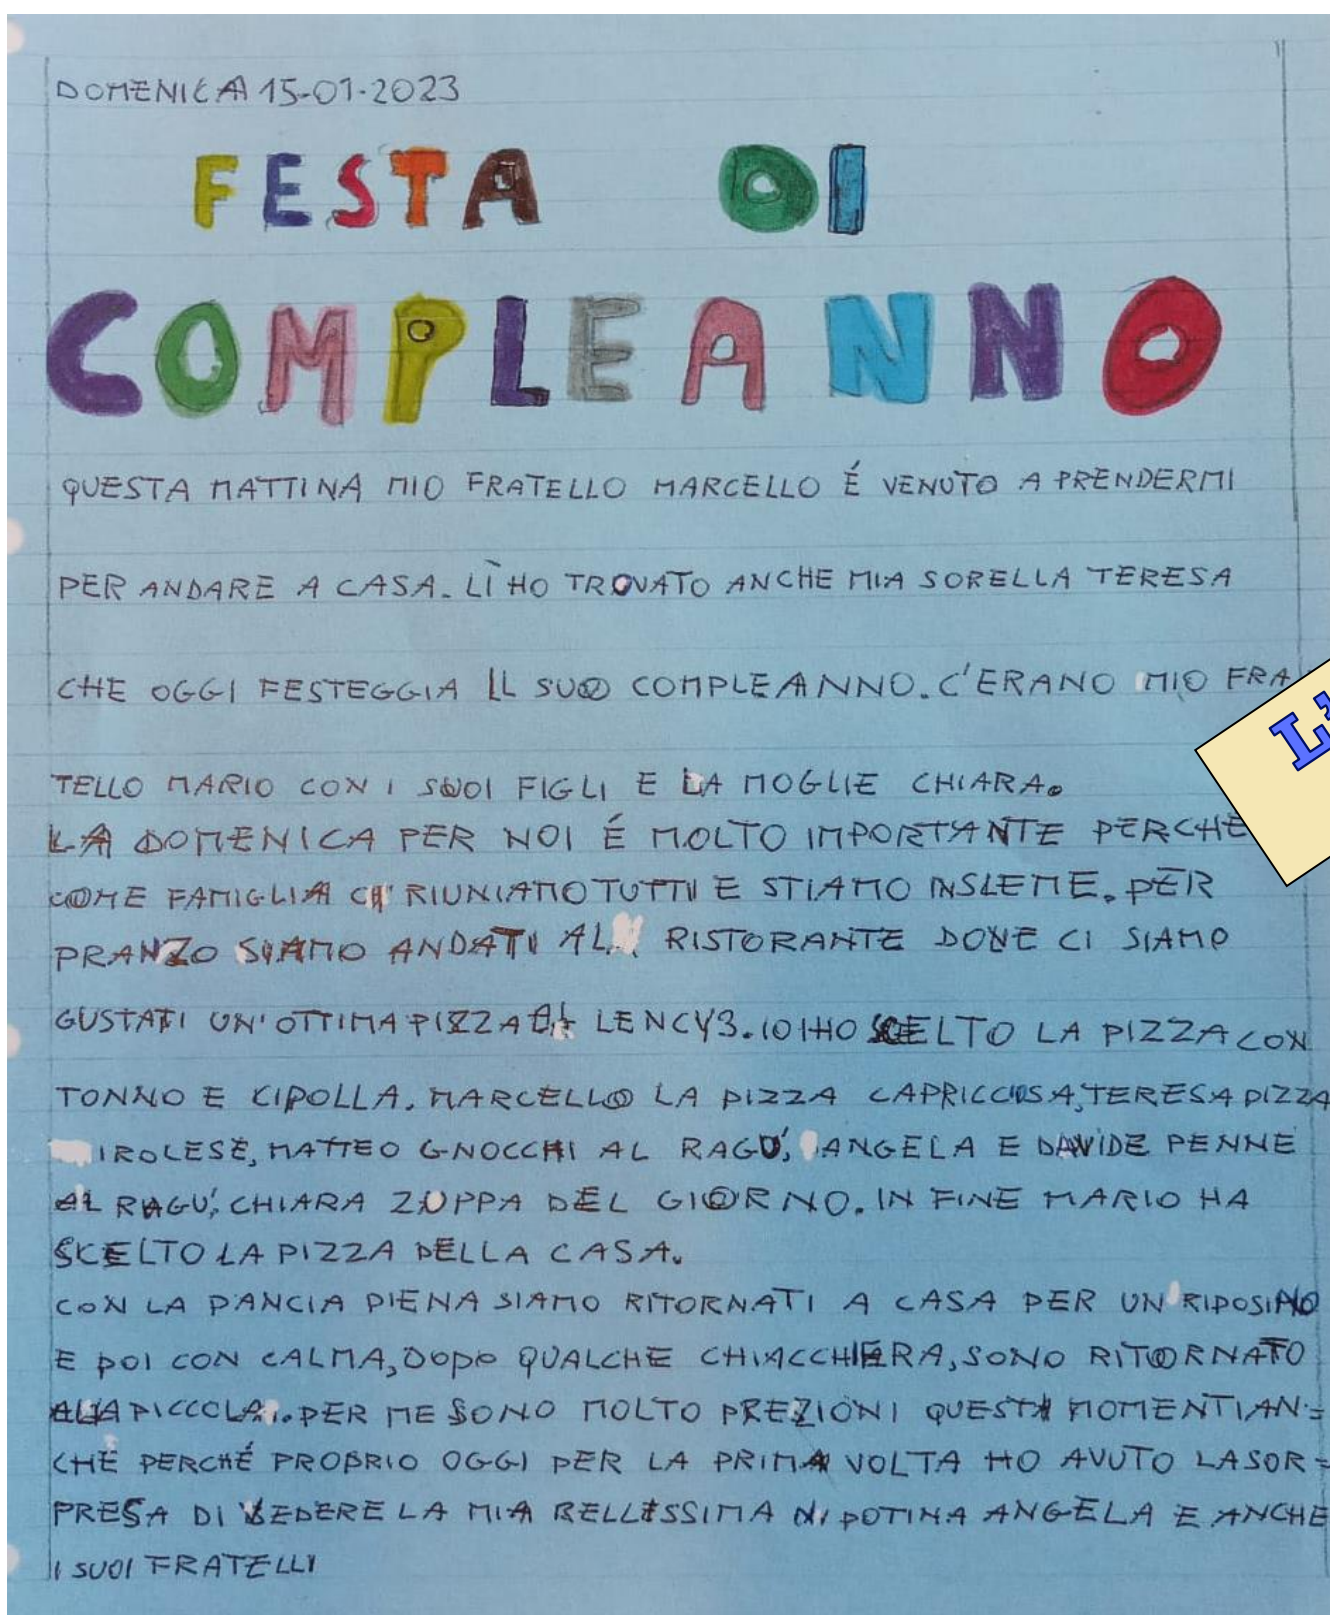 DOMENICA 15-01-2023
FESTA DI
COMPLEANNO
QUESTA MATTINA MIO FRATELLO MARCELLO É VENUTO A PRENDERMI
PER ANDARE A CASA. LÌ HO TROVATO ANCHE MIA SORELLA TERESA
CHE OGGI FESTEGGIA IL SUO COMPLEANNO. C'ERANO MIO FRA
L'
TELLO MARIO CON I SUOI FIGLI E LA MOGLIE CHIARA.
LA DOMENICA PER NOI É MOLTO IMPORTANTE PERCHÉ
COME FAMIGLIA CI RIUNIAMO TUTTI E STIAMO INSIEME. PER
PRANZO SIAMO ANDATI AL RISTORANTE DOVE CI SIAMO
GUSTATI UN'OTTIMA PIZZA AL LENCY3. IO HO SCELTO LA PIZZA CON
TONNO E CIPOLLA, MARCELLO LA PIZZA CAPRICCIOSA, TERESA PIZZA
IROLESE, MATTEO GNOCCHI AL RAGÚ, ANGELA E DAVIDE PENNE
AL RAGÚ, CHIARA ZUPPA DEL GIORNO. IN FINE MARIO HA
SCELTO LA PIZZA DELLA CASA.
CON LA PANCIA PIENA SIAMO RITORNATI A CASA PER UN RIPOSINO
E POI CON CALMA, DOPO QUALCHE CHIACCHIERA, SONO RITORNATO
ALLA PICCOLA. PER ME SONO MOLTO PREZIONI QUESTI MOMENTI AN=
CHE PERCHÉ PROPRIO OGGI PER LA PRIMA VOLTA HO AVUTO LA SOR=
PRESA DI VEDERE LA MIA BELLISSIMA NIPOTINA ANGELA E ANCHE
I SUOI FRATELLI